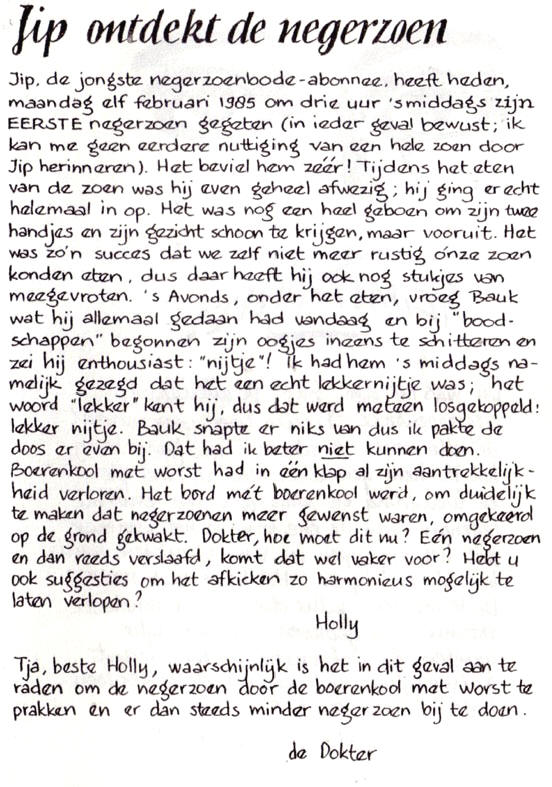 Jip ontdekt de negerzoen
Jip, de jongste negerzoenbode-abonnee, heeft heden,
maandag elf februari 1985 om drie uur 'smiddags zijn
EERSTE negerzoen gegeten (in ieder geval bewust; ik
kan me geen eerdere nuttiging van een hele zoen door
Jip herinneren). Het beviel hem zéér! Tijdens het eten
van de zoen was hij even geheel afwezig; hij ging er echt
helemaal in op. Het was nog een heel geboen om zijn twee
handjes en zijn gezicht schoon te krijgen, maar vooruit. Het
was zo'n succes dat we zelf niet meer rustig ónze zoen
konden eten, dus daar heeft hij ook nog stukjes van
meegevroten. 's Avonds, onder het eten, vroeg Bauk
wat hij allemaal gedaan had vandaag en bij "bood-
schappen" begonnen zijn oogjes ineens te schitteren en
zei hij enthousiast: "nijtje"! Ik had hem 's middags na-
melijk gezegd dat het een echt lekkernijtje was; het
woord "lekker" kent hij, dus dat werd meteen losgekoppeld:
lekker nijtje. Bauk snapte er niks van dus ik pakte de
doos er even bij. Dat had ik beter niet kunnen doen.
Boerenkool met worst had in één klap al zijn aantrekkelijk-
heid verloren. Het bord mét boerenkool werd, om duidelijk
te maken dat negerzoenen meer gewenst waren, omgekeerd
op de grond gekwakt. Dokter, hoe moet dit nu? Eén negerzoen
en dan reeds verslaafd, komt dat wel vaker voor? Hebt u
ook suggesties om het afkicken zo harmonieus mogelijk te
laten verlopen?
Holly
Tja, beste Holly, waarschijnlijk is het in dit geval aan te
raden om de negerzoen door de boerenkool met worst te
prakken en er dan steeds minder negerzoen bij te doen.
de Dokter